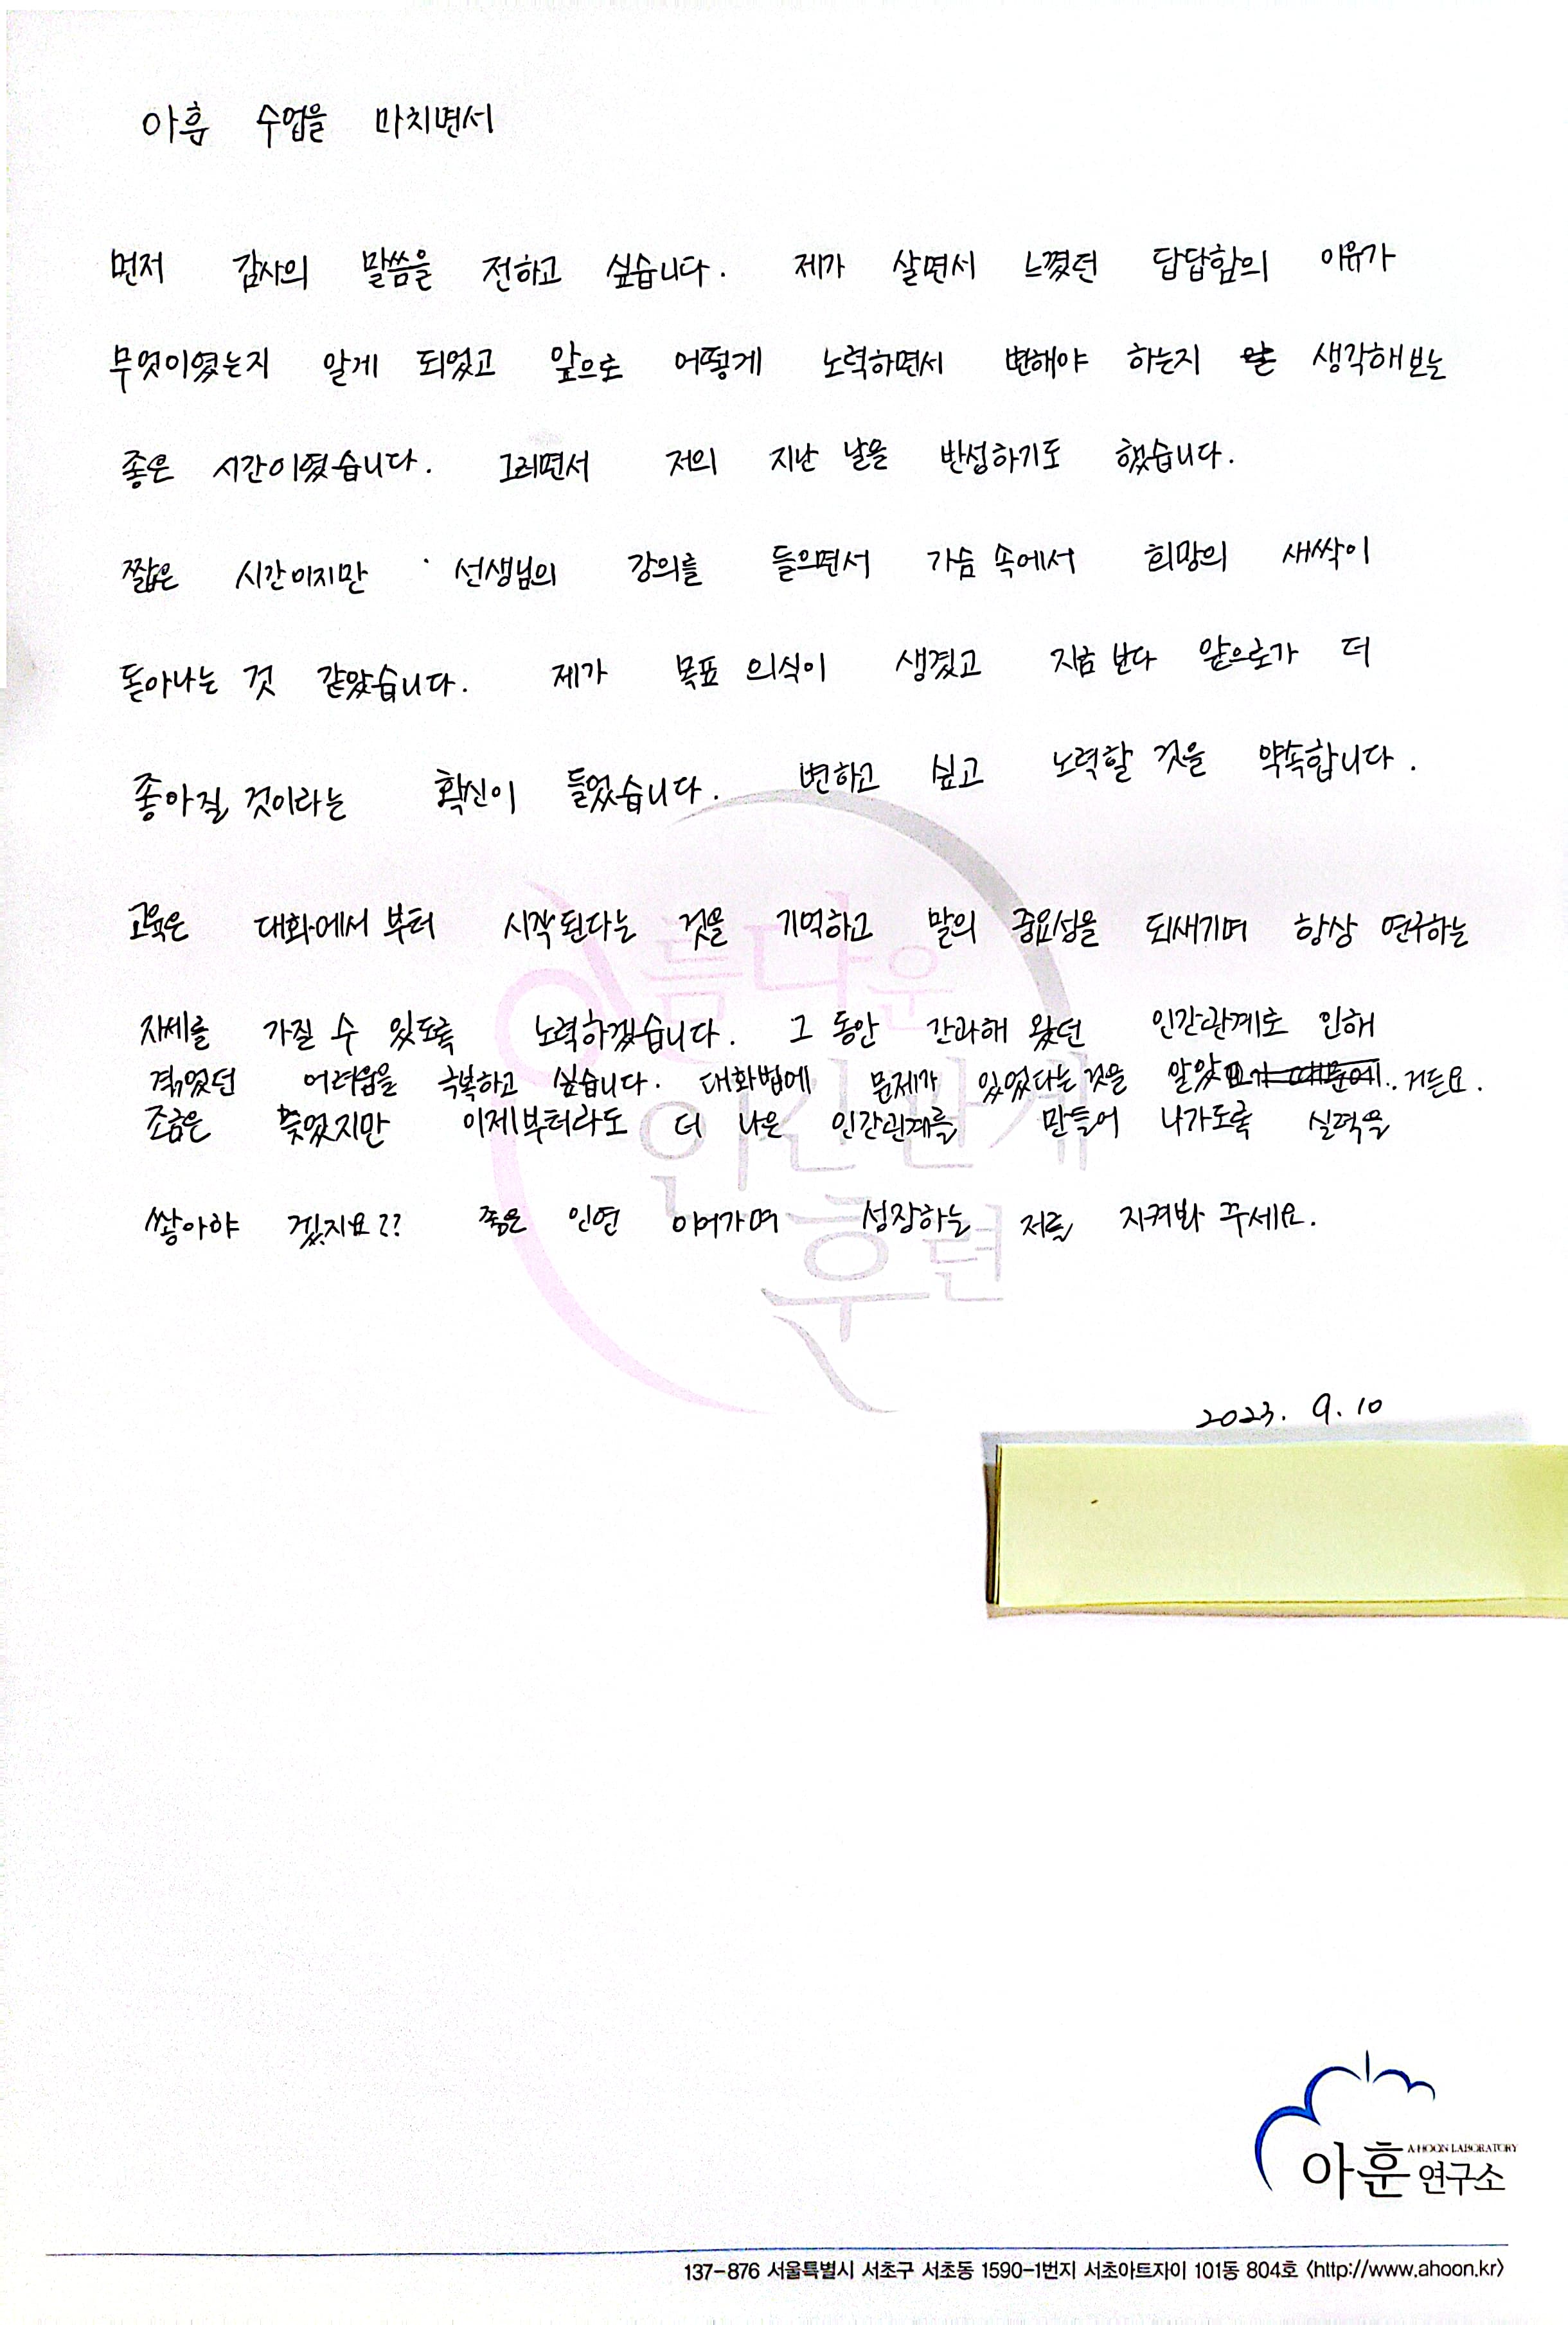 아훈 수업을 마치면서
먼저 감사의 말씀을 전하고 싶습니다. 제가 살면서 느꼈던 답답함의 이유가
무엇이였는지 알게 되었고 앞으로 어떻게 노력하면서 변해야 하는지 생각해보는
좋은 시간이였습니다. 그러면서 저의 지난 날을 반성하기도 했습니다.
짧은 시간이지만 선생님의 강의를 들으면서 가슴 속에서 희망의 새싹이
돋아나는 것 같았습니다. 제가 목표 의식이 생겼고 지금 보다 앞으로가 더
좋아질 것이라는 확신이 들었습니다. 변하고 싶고 노력할 것을 약속합니다.
교육은 대화에서 부터 시작된다는 것을 기억하고 말의 중요성을 되새기며 항상 연구하는
자세를 가질 수 있도록 노력하겠습니다. 그 동안 간과해 왔던 인간관계로 인해
겪었던 어려움을 극복하고 싶습니다. 대화법에 문제가 있었다는 것을 알았거든요.
조금은 늦었지만 이제부터라도 더 나은 인간관계를 만들어 나가도록 실력을
쌓아야 겠지요?? 좋은 인연 이어가며 성장하는 저를 지켜봐 주세요.
아름다운
인간관계
훈련
2023. 9. 10
A-HOON LABORATORY
아훈 연구소
137-876 서울특별시 서초구 서초동 1590-1번지 서초아트자이 101동 804호 〈http://www.ahoon.kr〉